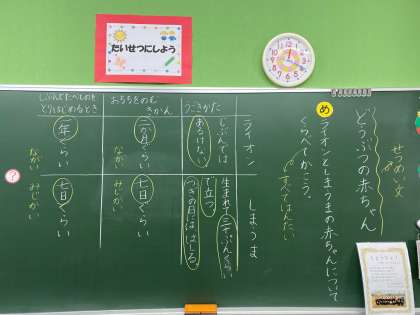 たいせつにしよう
せつめい文
どうぶつの赤ちゃん
め
ライオンとしまうまの赤ちゃんについて
くらべてかこう。
すべてはんたい
ライオン
しまうま
うごきかた
じぶんでは
あるけない
生まれて三十ぷんぐらい
で立つ。
つぎの日には はしる
おちちをのむ
きかん
二か月ぐらい
ながい
七日ぐらい
みじかい
じぶんでたべものを
とりはじめるとき
一年ぐらい
ながい
七日ぐらい
みじかい
?